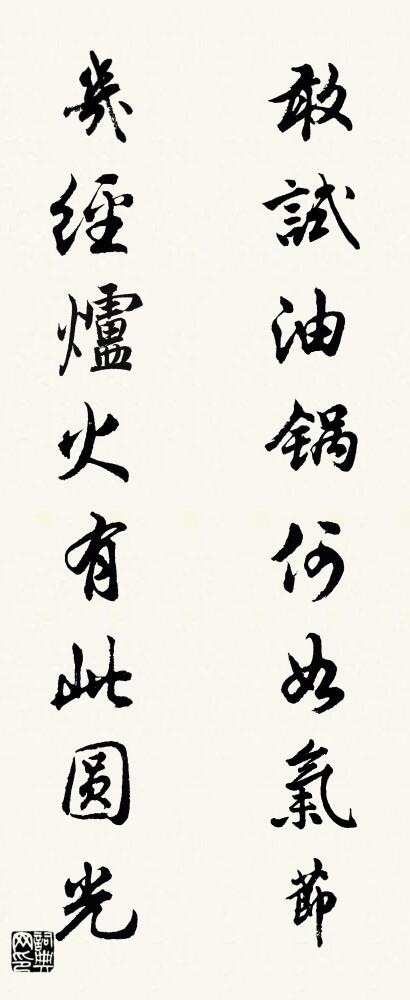 敢試油鍋何如氣節
幾經爐火有此圆光
詞典网印